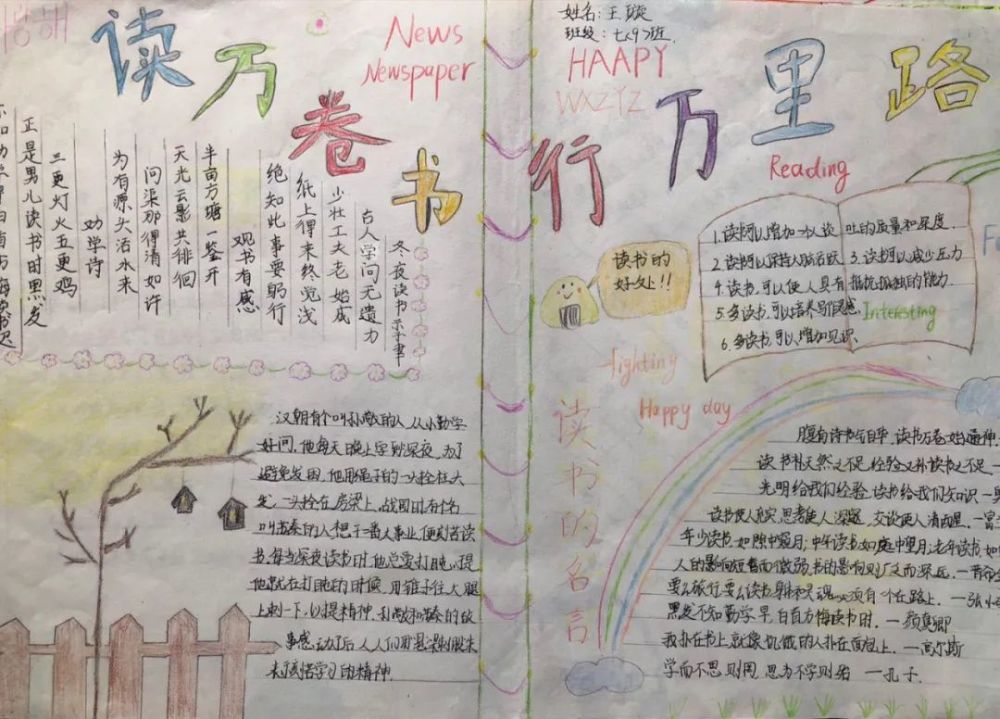 读万卷书
News
Newspaper
姓名:王璇
班级:七(9)班
HAAPY
WXZYZ
行万里路
Reading
冬夜读书示子聿
古人学问无遗力
少壮工夫老始成
纸上得来终觉浅
绝知此事要躬行
观书有感
半南方塘一鉴开
天光云影共徘徊
问渠那得清如许
为有源头活水来
劝学诗
三更灯火五更鸡
正是男儿读书时黑发
读书的
好处!!
1.读书可以增加一个人谈吐的质量和深度.
2.读书可以保持大脑活跃 3.读书可以减少压力
4.读书可以使人具有抵抗孤独的能力.
5.多读书可以培养写作灵感.
Interesting
6.多读书可以增加见识.
fighting
Happy day
汉朝有个叫孙敬的人,从小勤学
好问,他每天晚上学到深夜,为了
避免发困,他用绳子的一头拴住大
发,一头拴在房梁上,战国时有个名
叫苏秦的人想干一番大事业,便刻苦读
书,每当深夜读书时他总要打盹,提
他就在打盹的时候,用锥子往大腿
上刺一下,以提精神,孙敬和苏秦的故
事感动了后人,人们用悬梁刺股来
来
学习的精神.
读书的名言
腹有诗书气自华,读书万卷始通神.
读书补天然之不足,经验又补读书之不足.
光明给我们经验,读书给我们知识
读书使人充实,思考使人深邃,交谈使人清醒.
年少读书,如隙中窥月;中年读书,如庭中望月;老年读书,如
人的影响短暂而微弱,书的影响则广泛而深远.
要么旅行,要么读书,身体和灵魂,必须有一个在路上.
黑发不知勤学早,白首方悔读书迟.—颜真卿
我扑在书上,就像饥饿的人扑在面包上.—高尔斯
学而不思则罔,思而不学则殆 —孔子.